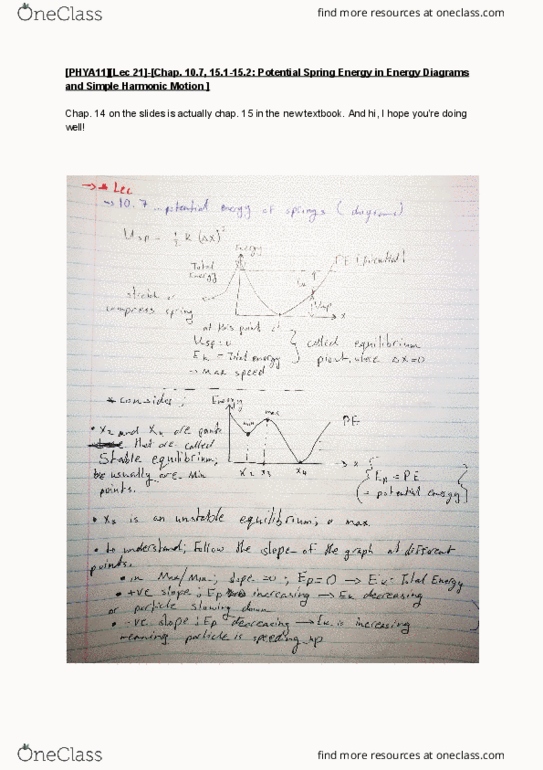 OneClass
find more resources at oneclass.com
[PHYA11][Lec 21]-[Chap. 10.7, 15.1-15.2: Potential Spring Energy in Energy Diagrams
and Simple Harmonic Motion ]
Chap. 14 on the slides is actually chap. 15 in the new textbook. And hi, I hope you're doing
well!
→ * Lec
→ 10.7 potential energy of springs (diagrams)
Usp = 1/2 k (Δx)²
Energy
Total
Energy
PE (potential)
stretch or
compress spring
Usp
x
at this point
Usp = 0
Ek = Total energy
→ Max speed
called equilibrium
point, where Δx=0
* consider;
Energy
min
max
PE
x2 x3 x4
→ x
• x2 and x4 are points
that are called
Stable equilibrium;
usually are Min
points.
Ep = PE
(→ potential energy)
• x3 is an unstable equilibrium; max.
• to understand; Follow the slope of the graph at different
points.
• in Max/Min; slope = 0; Ep = 0 → Ek = Total Energy
• +ve slope; Ep increasing → Ek decreasing
or particle slowing down
• -ve slope; Ep decreasing → Ek is increasing
meaning particle is speeding up
OneClass
find more resources at oneclass.com